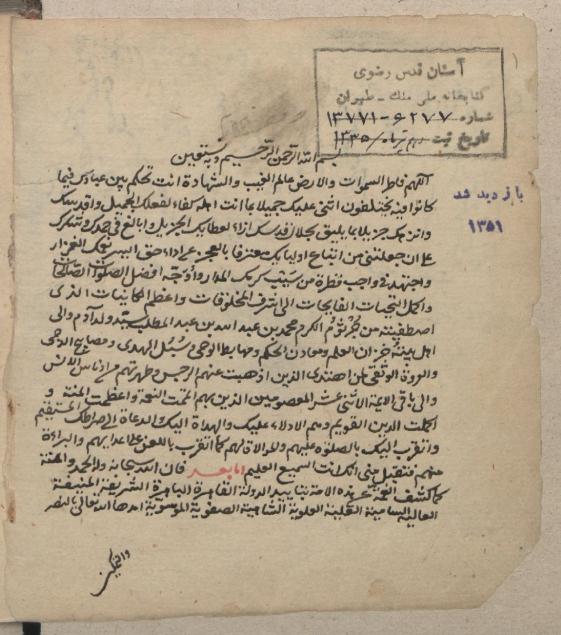 آستان قدس رضوی
کتابخانه ملی ملک - طهران
شماره ۶۲۷۷-۱۳۷۷۱
تاریخ ثبت تیرماه ۱۳۳۵
بازدید شد
۱۳۵۱
بسم الله الرحمن الرحیم وبه نستعین
اللهم فاطر السموات والارض عالم الغیب والشهادة انت تحکم بین عبادک فیما
کانوا فیه یختلفون اثنی علیک جمیلا بما انت اهله کفاء لفعلک الجمیل واقدسک
وانزهک جزیلا بما یلیق بجلال قدسک ازاء لعطائک الجزیل وابالغ فی حمدک وشکرک
علی ان جعلتنی من اتباع اولیائک معترفا بالعجز عن اداء حق الیسیر
واجتهد فی واجب قطرة من سیب کرمک المدرار وأوجه افضل الصلوات
واکمل التحیات الفایحات الی اشرف المخلوقات واعظم الکاینات الذی
اصطفیته من جرثوم الکرم محمد بن عبد الله بن عبد المطلب سید ولد آدم والی
اهل بیته خزان العلم ومعادن الحکم ومهابط الوحی وسبل الهدی ومصابیح الدجی
والعروة الوثقی لمن اهتدی الذین اذهبت عنهم الرجس وطهرتهم من ادناس الانس
والی باقی الایمة الاثنی عشر المعصومین الذین بهم اتممت النعمة واعظمت المنة و
اکملت الدین القویم وهم الادلاء علیک والهداة الیک والدعاة الی صراطک المستقیم
واتقرب الیک بالصلوة علیهم والموالاة لهم کما اتقرب باللعن علی اعدایهم والبراءة
منهم فتقبل منی انک انت السمیع العلیم اما بعد فان الله سبحانه وله الحمد والمنة
کما کشف الغمة عن هذه الامة بتایید الدولة القاهرة الباهرة الشریفة المنیفة
العالیة السامیة العلویة الصفویة الموسویة امدها الله تعالی بالنصر
والتمکین